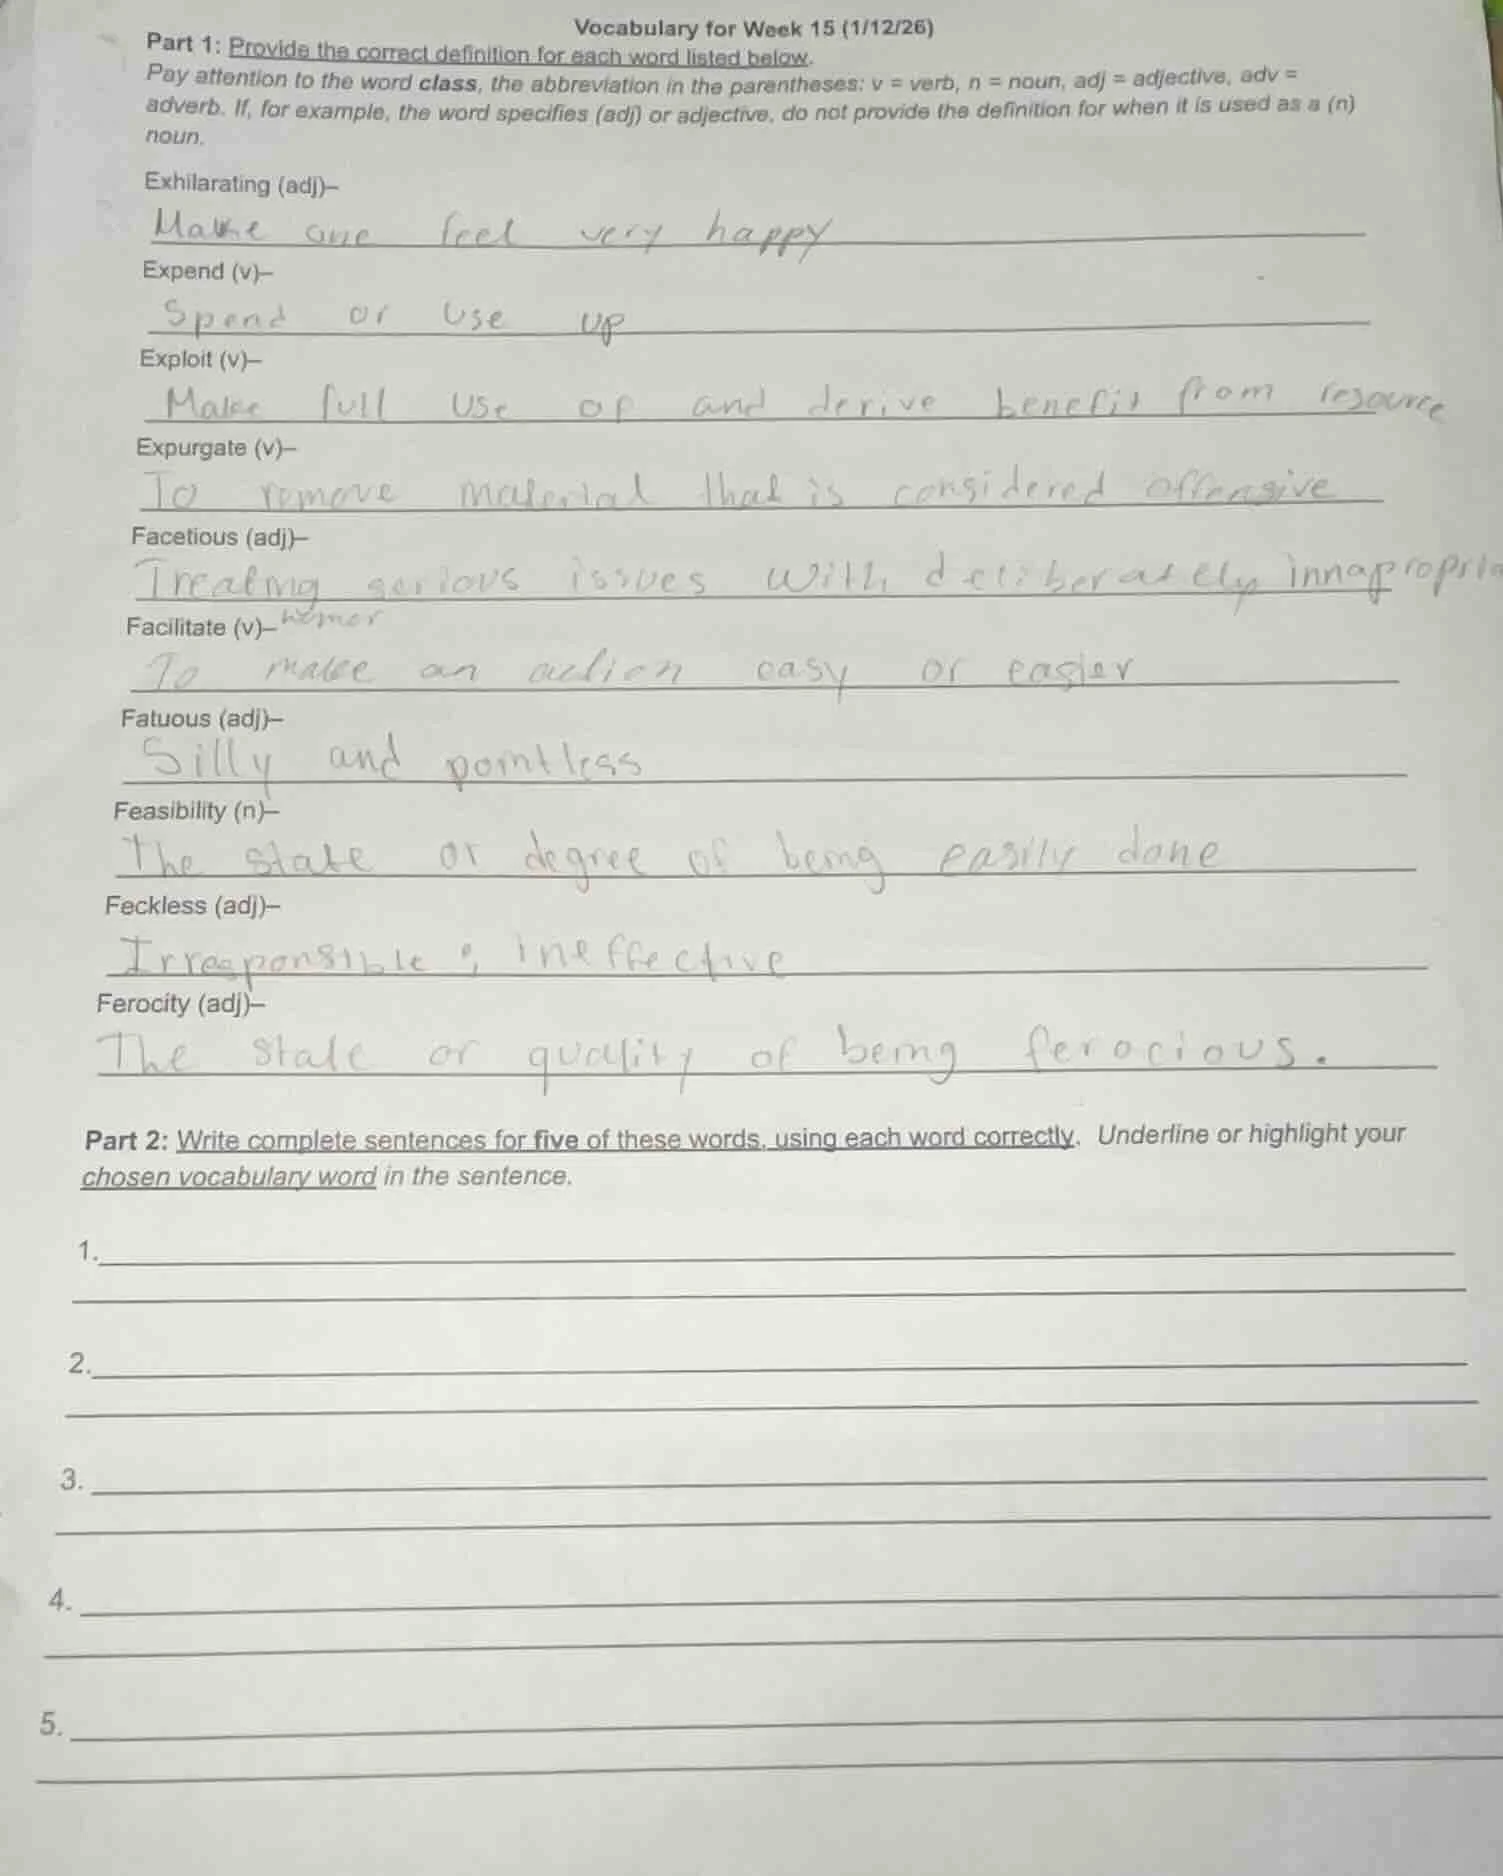 Vocabulary for Week 15 (1/12/26)
Part 1: Provide the correct definition for each word listed below.
Pay attention to the word class, the abbreviation in the parentheses: v = verb, n = noun, adj = adjective, adv =
adverb. If, for example, the word specifies (adj) or adjective, do not provide the definition for when it is used as a (n)
noun.
Exhilarating (adj)–
Make one feel very happy
Expend (v)–
Spend or use up
Exploit (v)–
Make full use of and derive benefit from resource
Expurgate (v)–
To remove material that is considered offensive
Facetious (adj)–
Treating serious issues with deliberately innapropria
humor
Facilitate (v)–
To make an action easy or easier
Fatuous (adj)–
Silly and pointless
Feasibility (n)–
The state or degree of being easily done
Feckless (adj)–
Irresponsible ; ineffective
Ferocity (adj)–
The state or quality of being ferocious.
Part 2: Write complete sentences for five of these words, using each word correctly. Underline or highlight your
chosen vocabulary word in the sentence.
1.
2.
3.
4.
5.